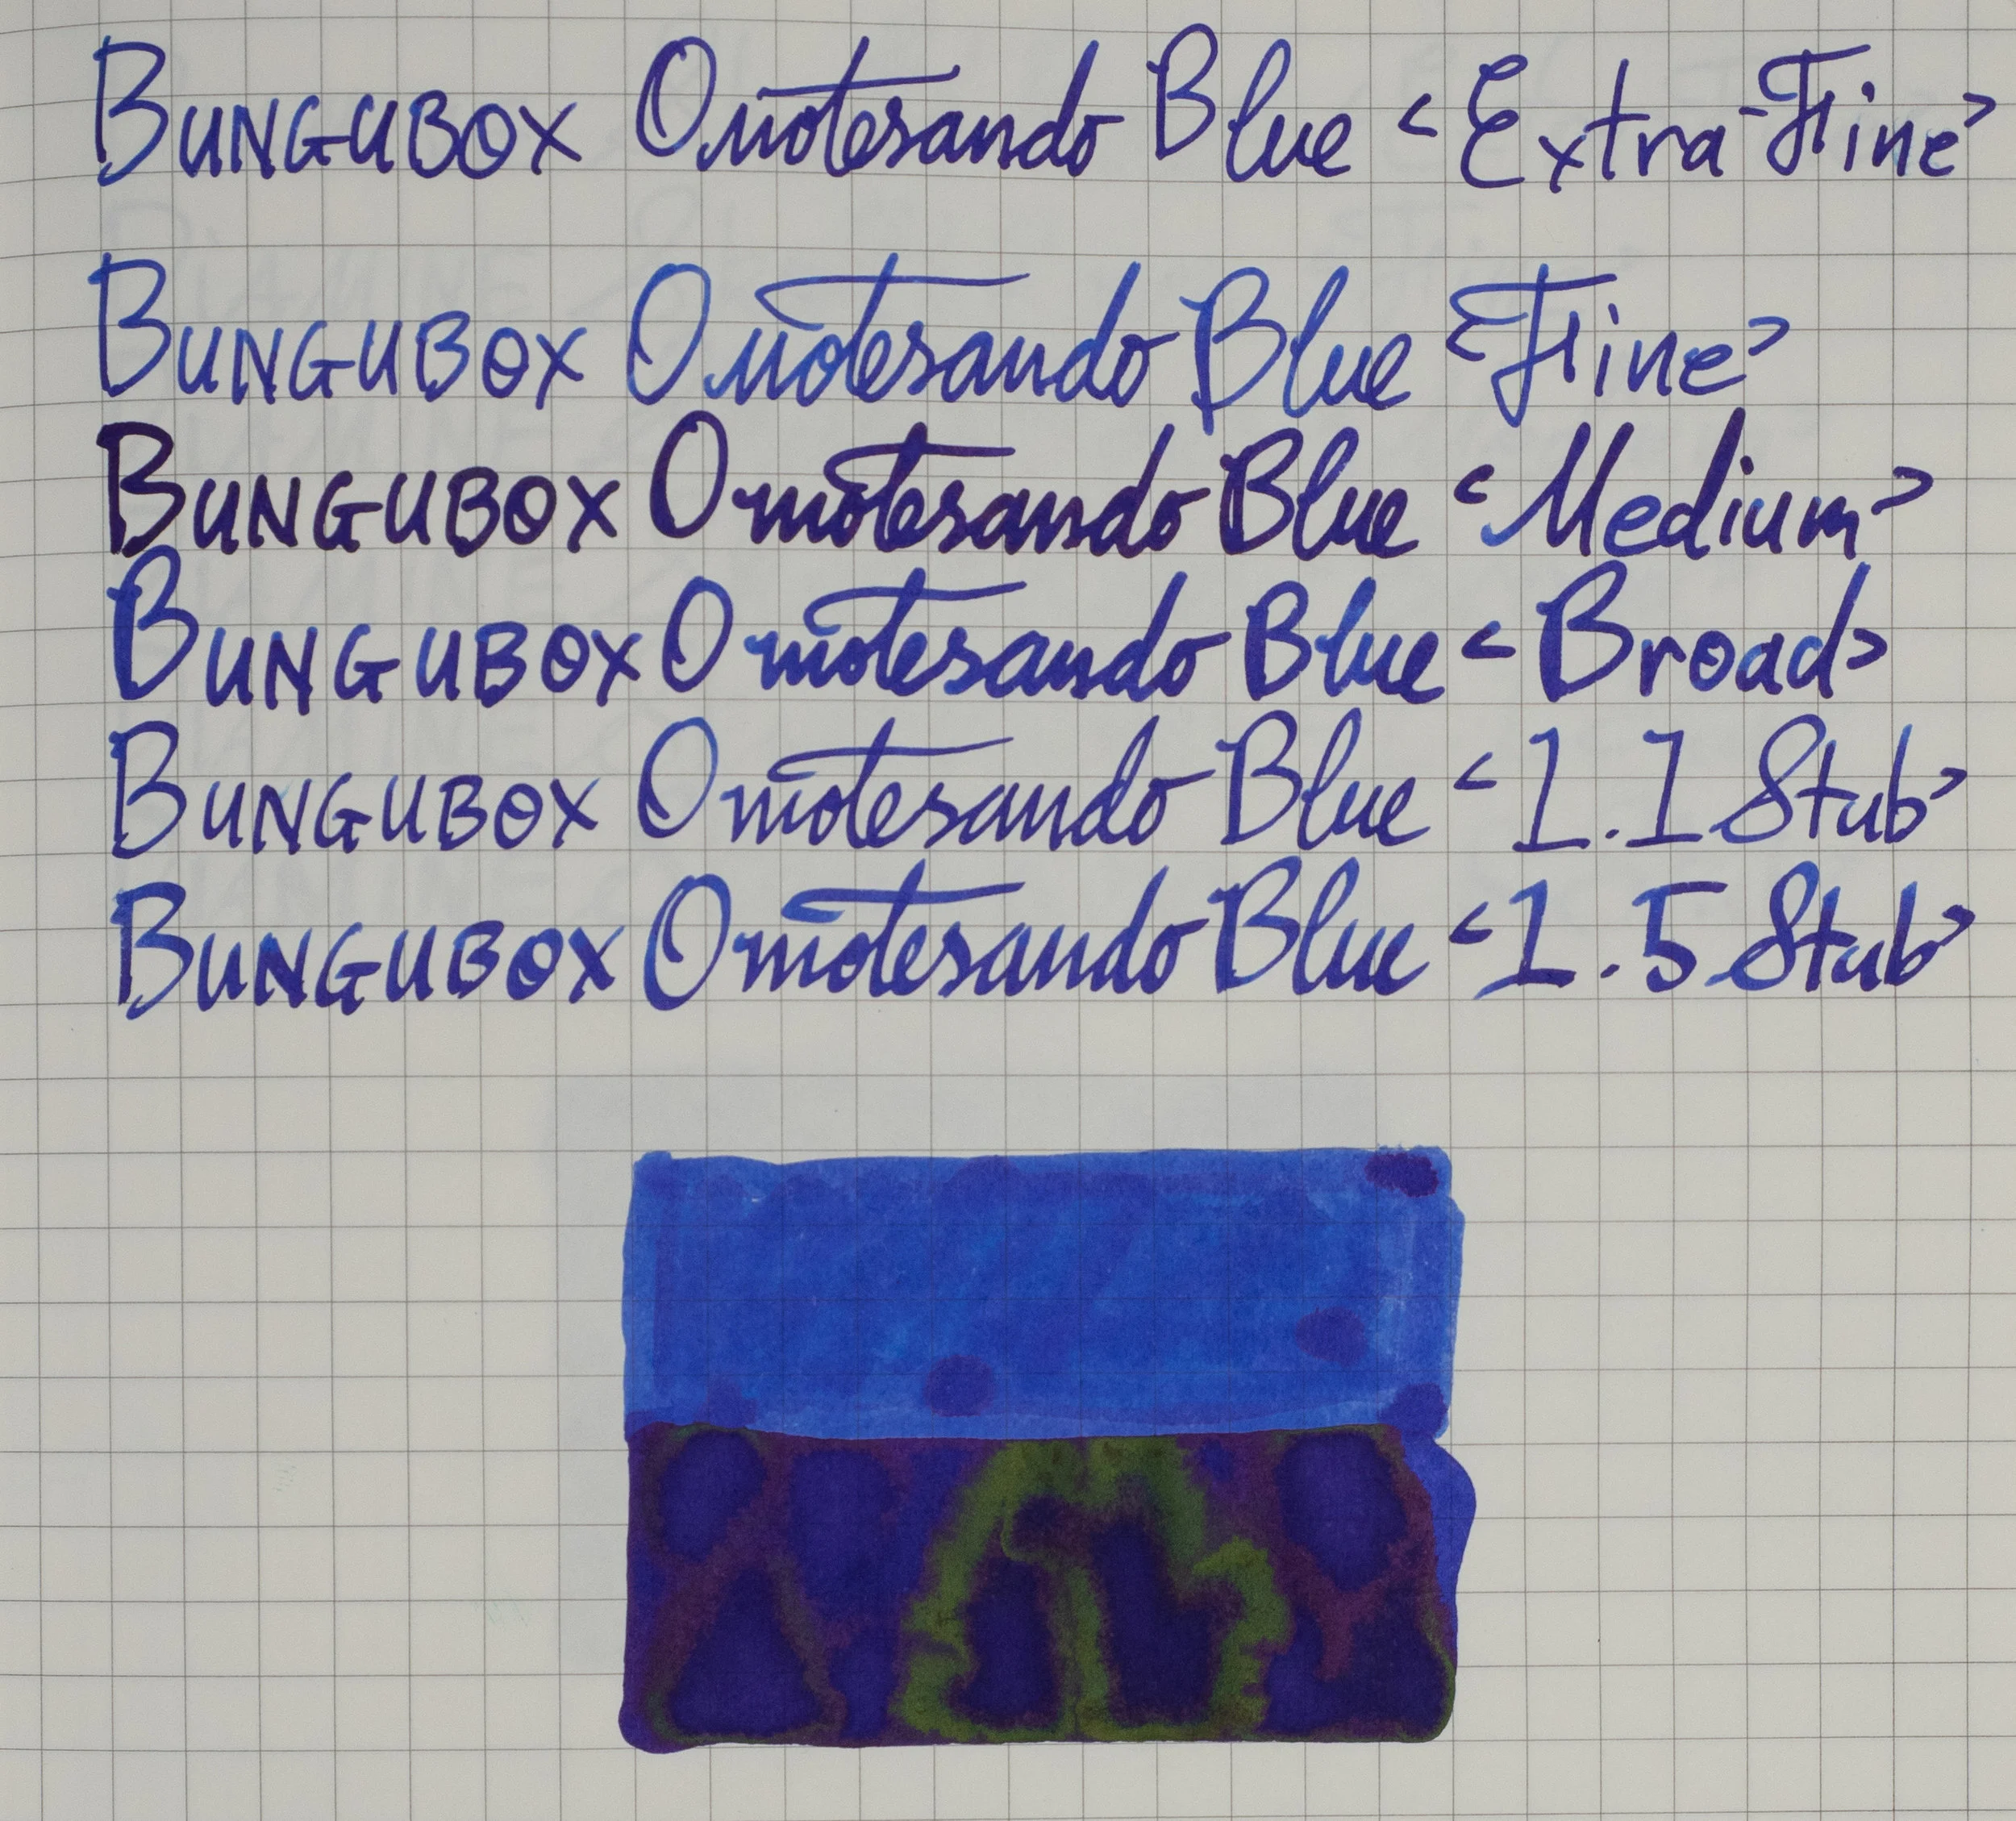 BUNGUBOX Omotesando Blue <Extra-Fine>
BUNGUBOX Omotesando Blue <Fine>
BUNGUBOX Omotesando Blue <Medium>
BUNGUBOX Omotesando Blue <Broad>
BUNGUBOX Omotesando Blue <1.1 Stub>
BUNGUBOX Omotesando Blue <1.5 Stub>